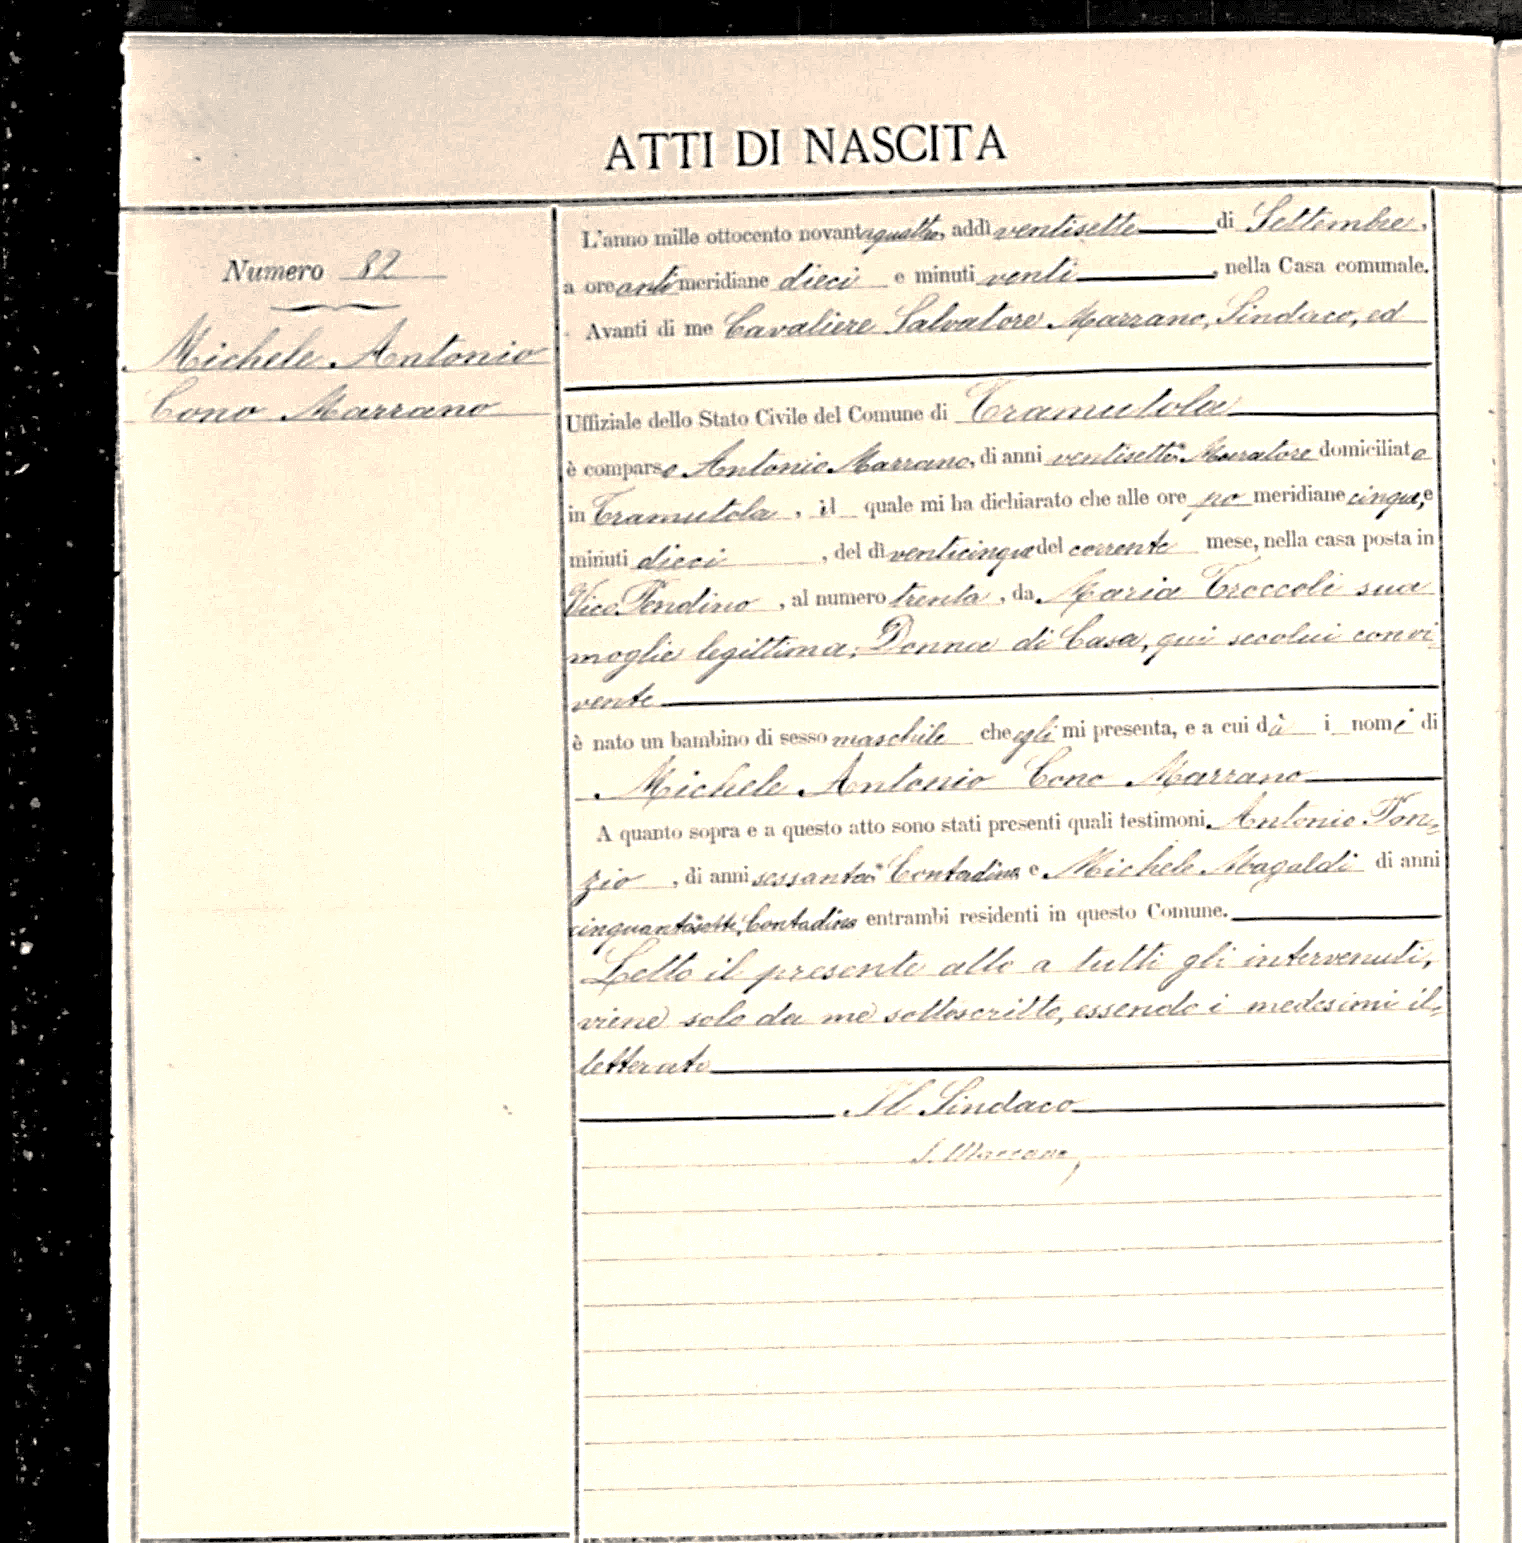 ATTI DI NASCITA
Numero 82
Michele Antonio
Cono Marrano
L'anno mille ottocento novantaquattro, addì ventisette di Settembre,
a ore antimeridiane dieci e minuti venti, nella Casa comunale.
Avanti di me Cavaliere Salvatore Marrano, Sindaco, ed
Uffiziale dello Stato Civile del Comune di Tramutola
è comparso Antonio Marrano, di anni ventisette, Muratore domiciliato
in Tramutola, il quale mi ha dichiarato che alle ore pomeridiane cinque, e
minuti dieci, del dì venticinque del corrente mese, nella casa posta in
Vico Pendino, al numero trenta, da Maria Troccoli sua
moglie legittima, Donna di Casa, qui secolui convi
vente
è nato un bambino di sesso maschile che egli mi presenta, e a cui dà i nomi di
Michele Antonio Cono Marrano
A quanto sopra e a questo atto sono stati presenti quali testimoni Antonio Pon-
zio, di anni sessanta Contadino e Michele Magaldi di anni
cinquantasette, Contadino entrambi residenti in questo Comune.
Letto il presente atto a tutti gli intervenuti,
viene solo da me sottoscritto, essendo i medesimi il-
letterati
Il Sindaco
S. Marrano